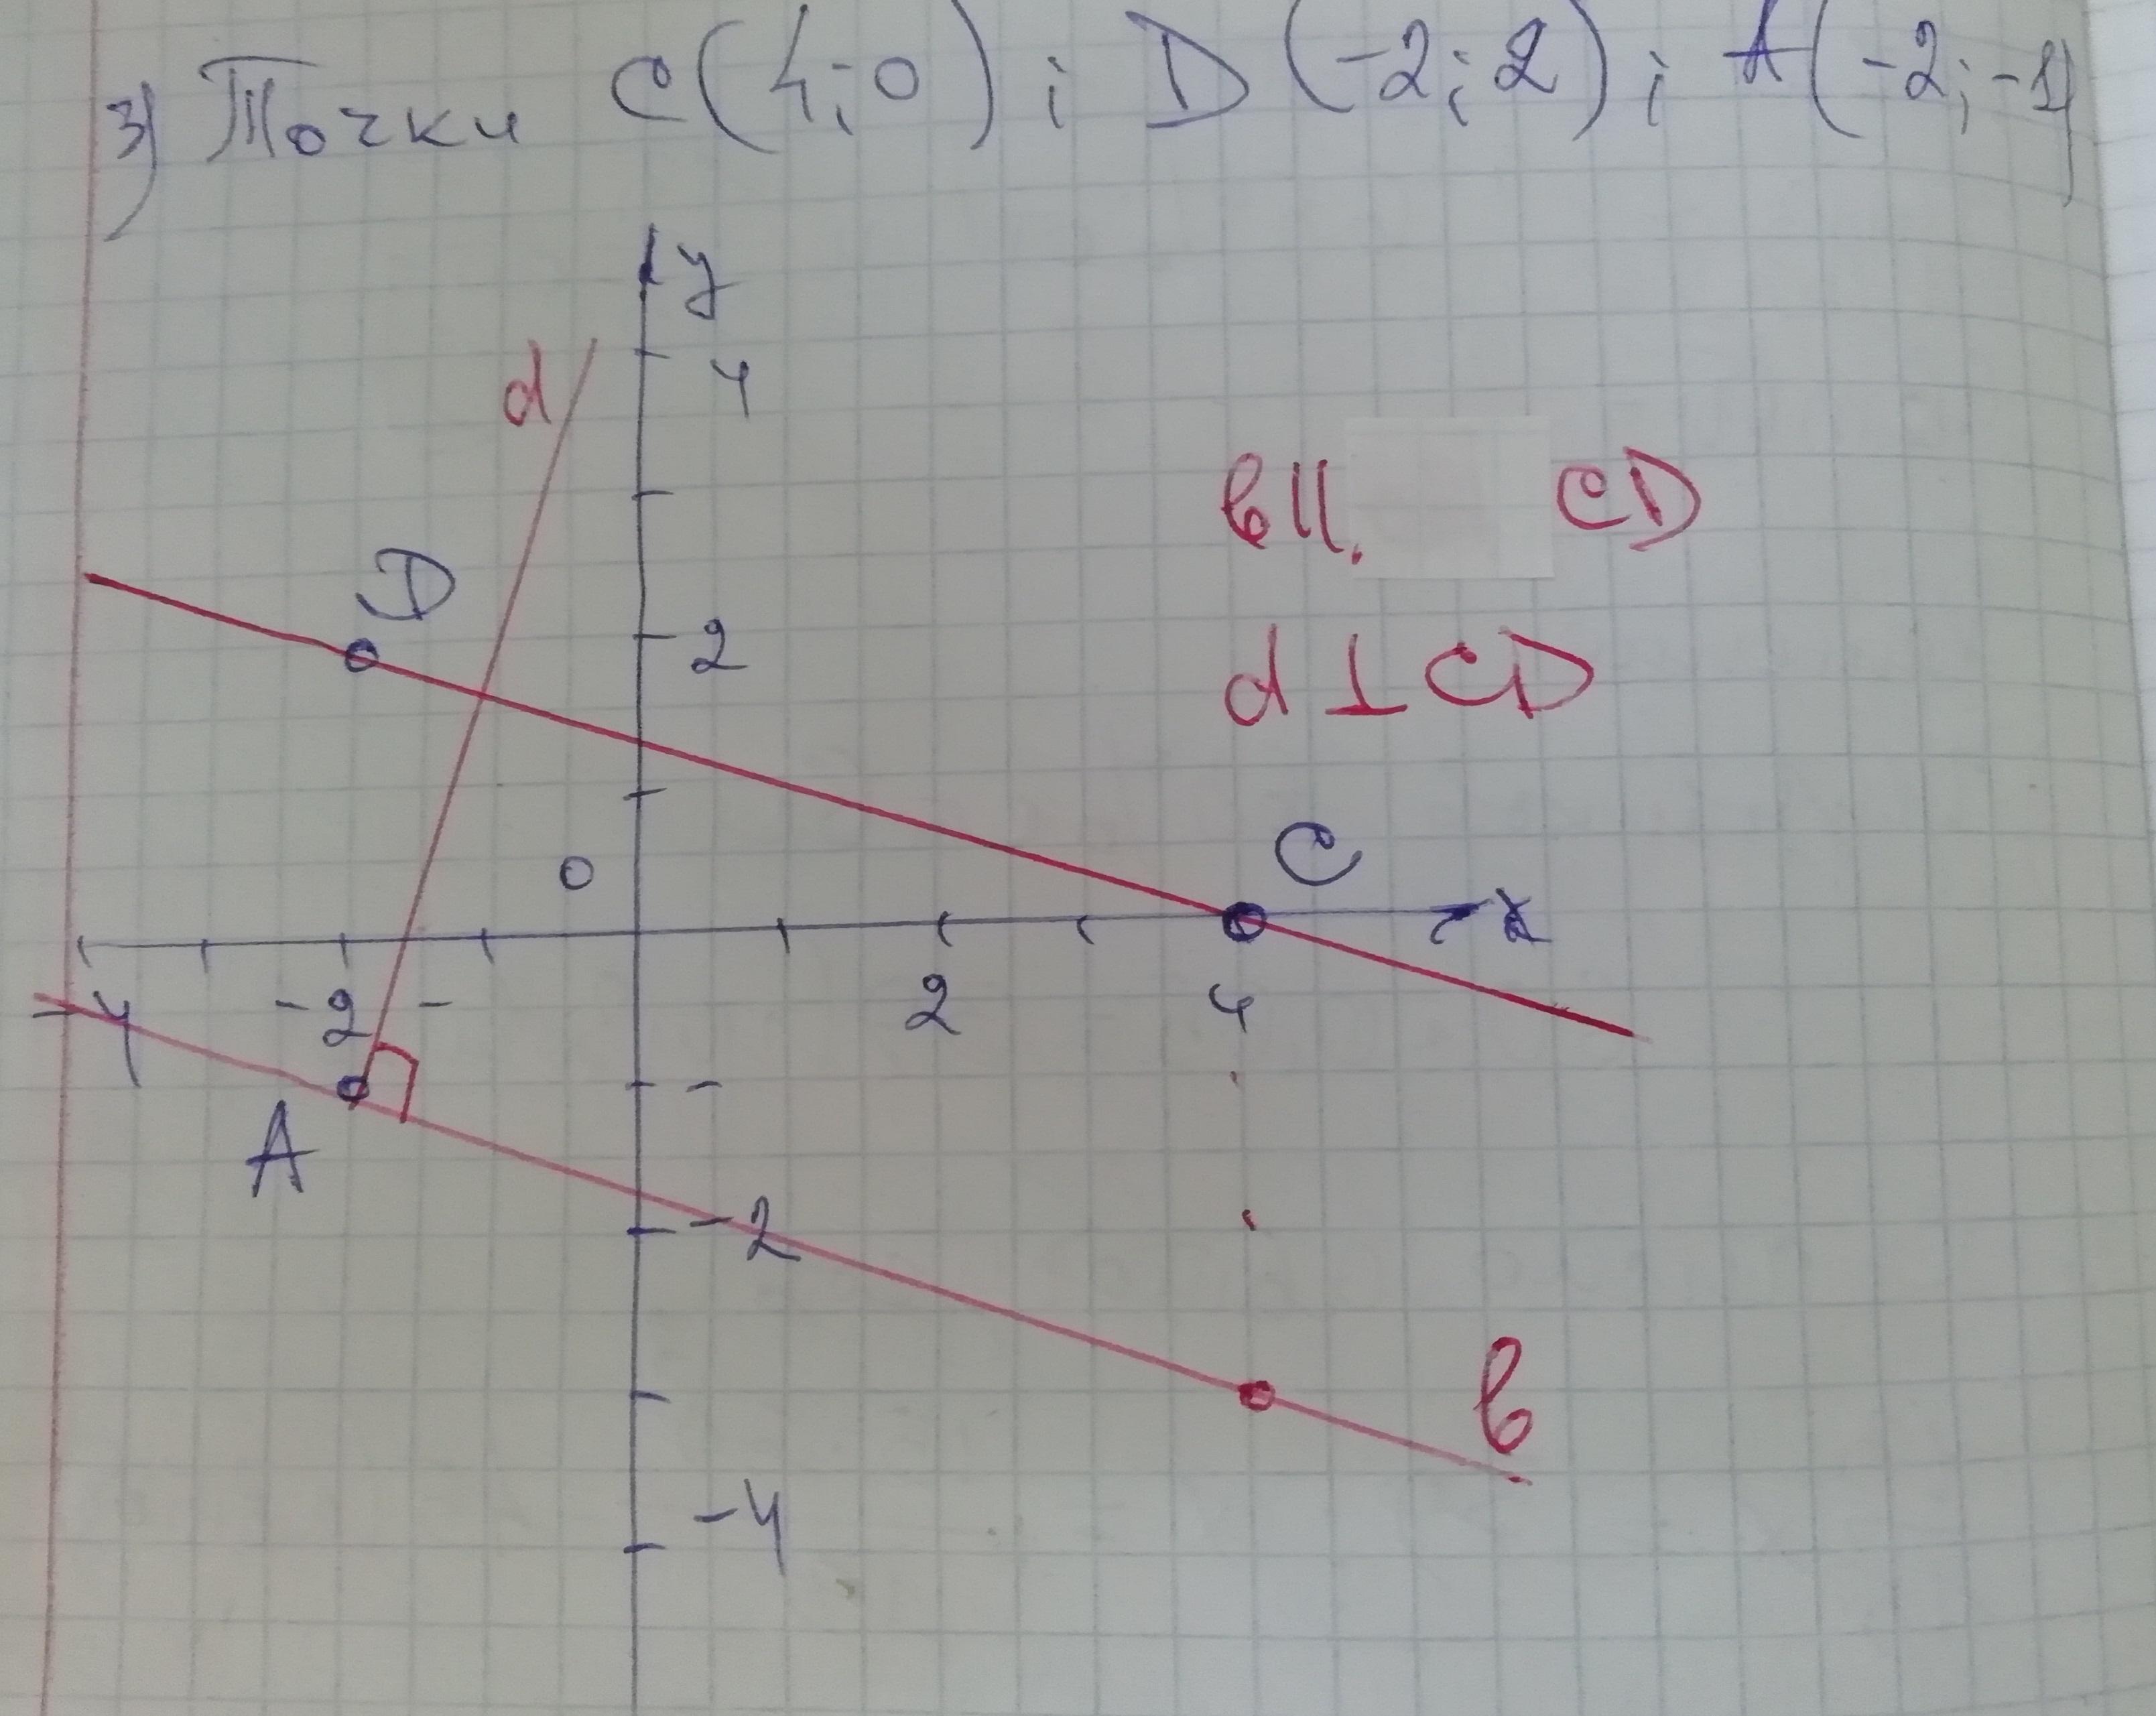 3) Точки C(4;0); D(-2;2); A(-2;-1)
y
d
4
в || CD
D
2
d ⊥ CD
C
0
x
-4
-2
-
2
4
-
A
-2
в
-4